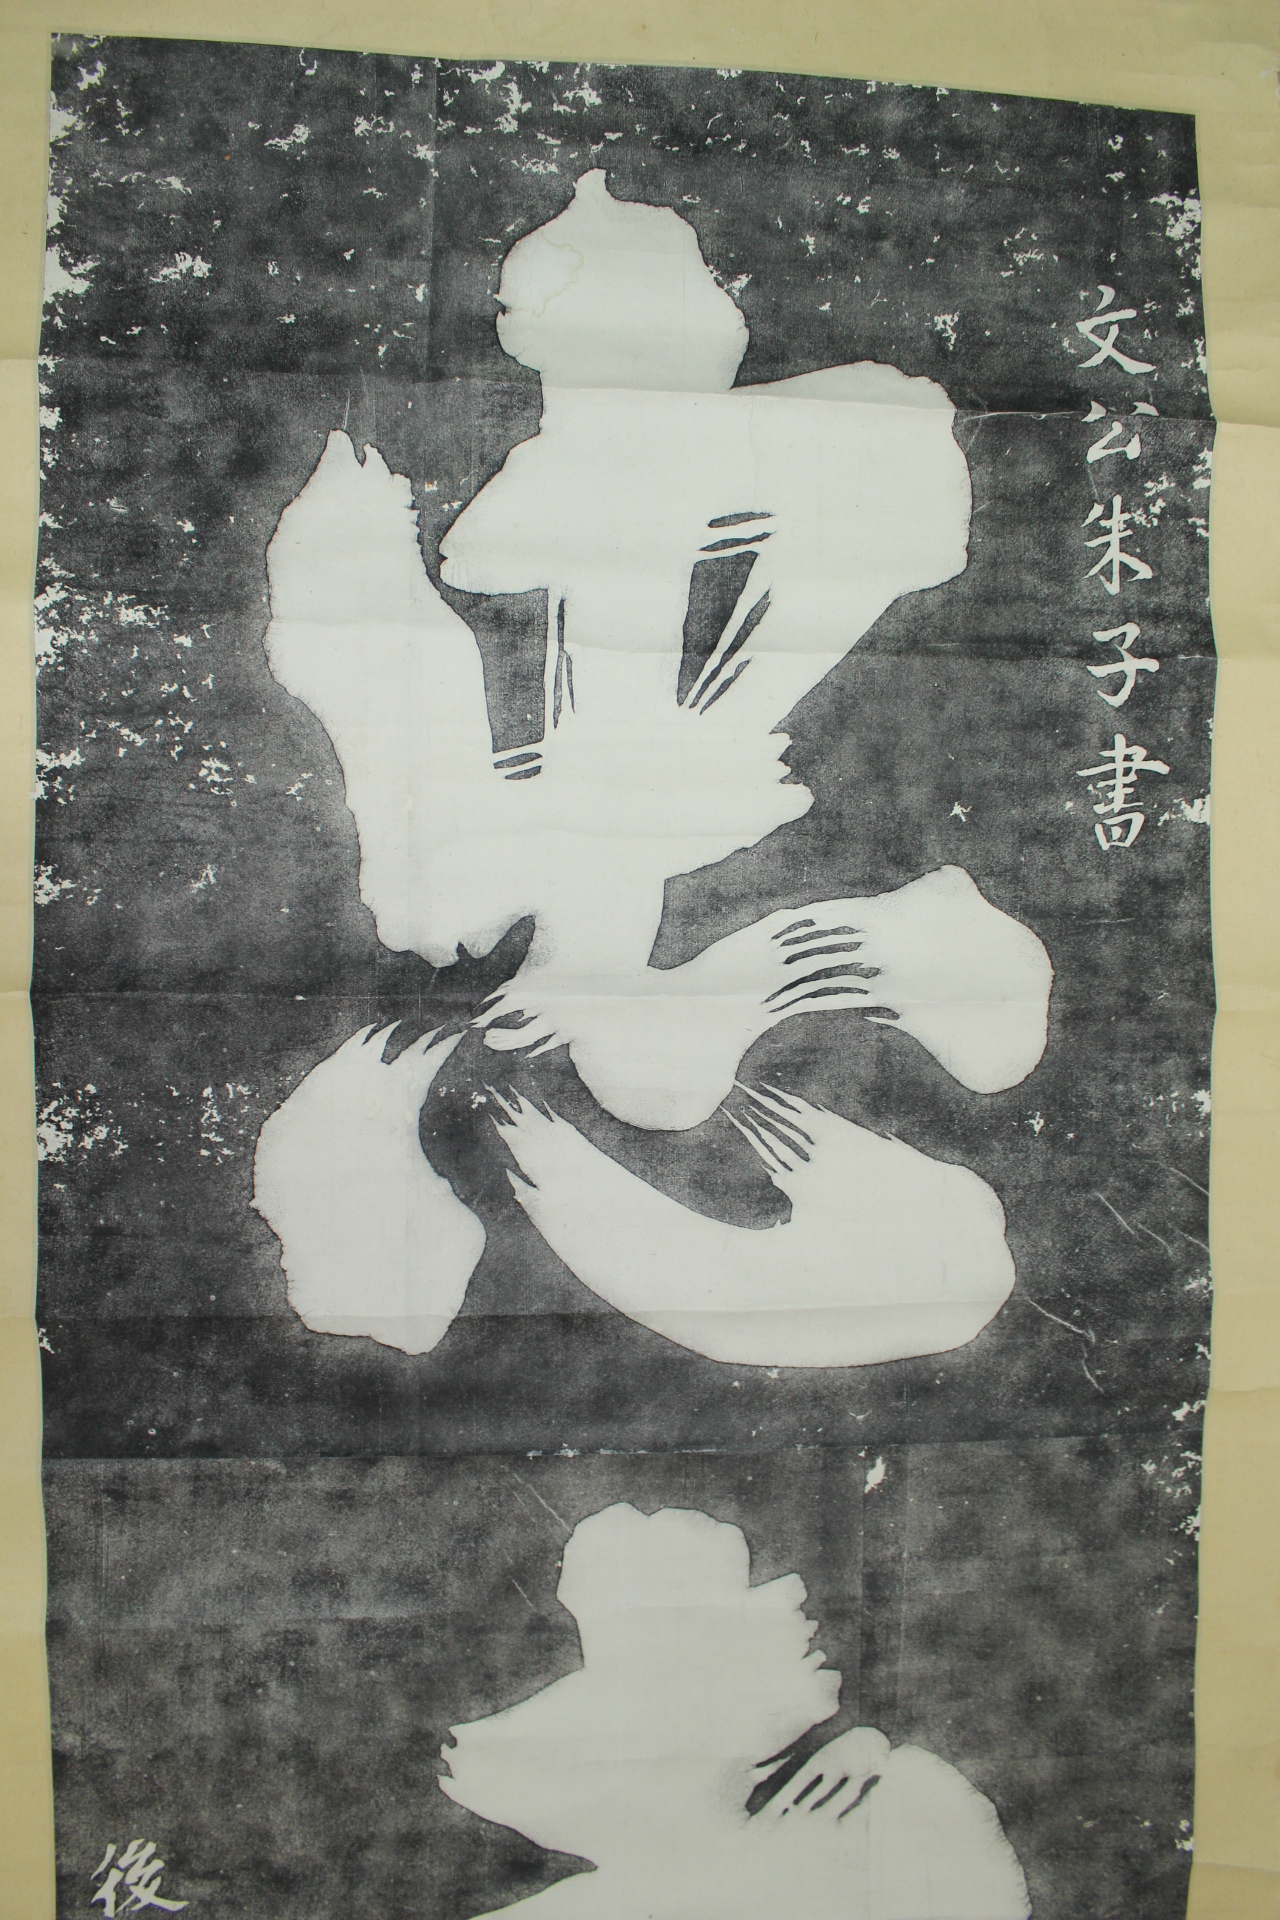 文公朱子書
忠
後